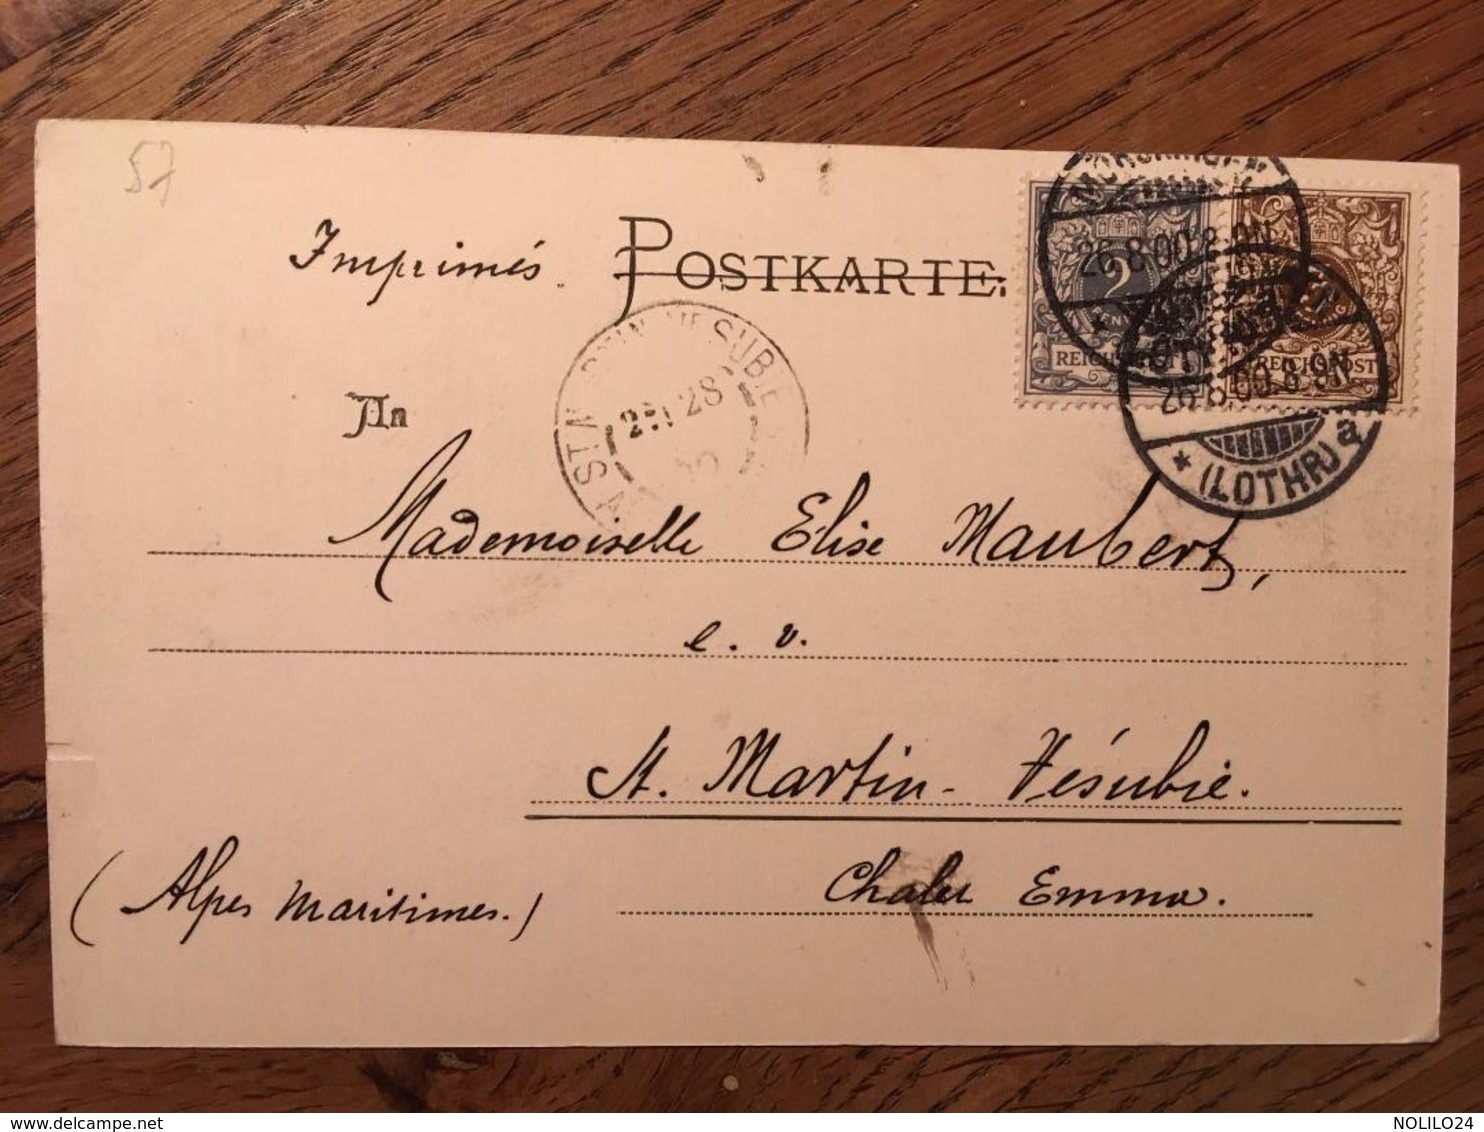 57
Imprimés. POSTKARTE.
26.8.00.8-9N.
2 REICHSPOST
26.8.00.8-9N.
* (LOTHR) a
ST MARTIN VESUBIE
28
An
Mademoiselle Elise Maubert,
e. v.
St. Martin-Vésubie.
(Alpes Maritimes.) Chalet Emma.
NOLILO24